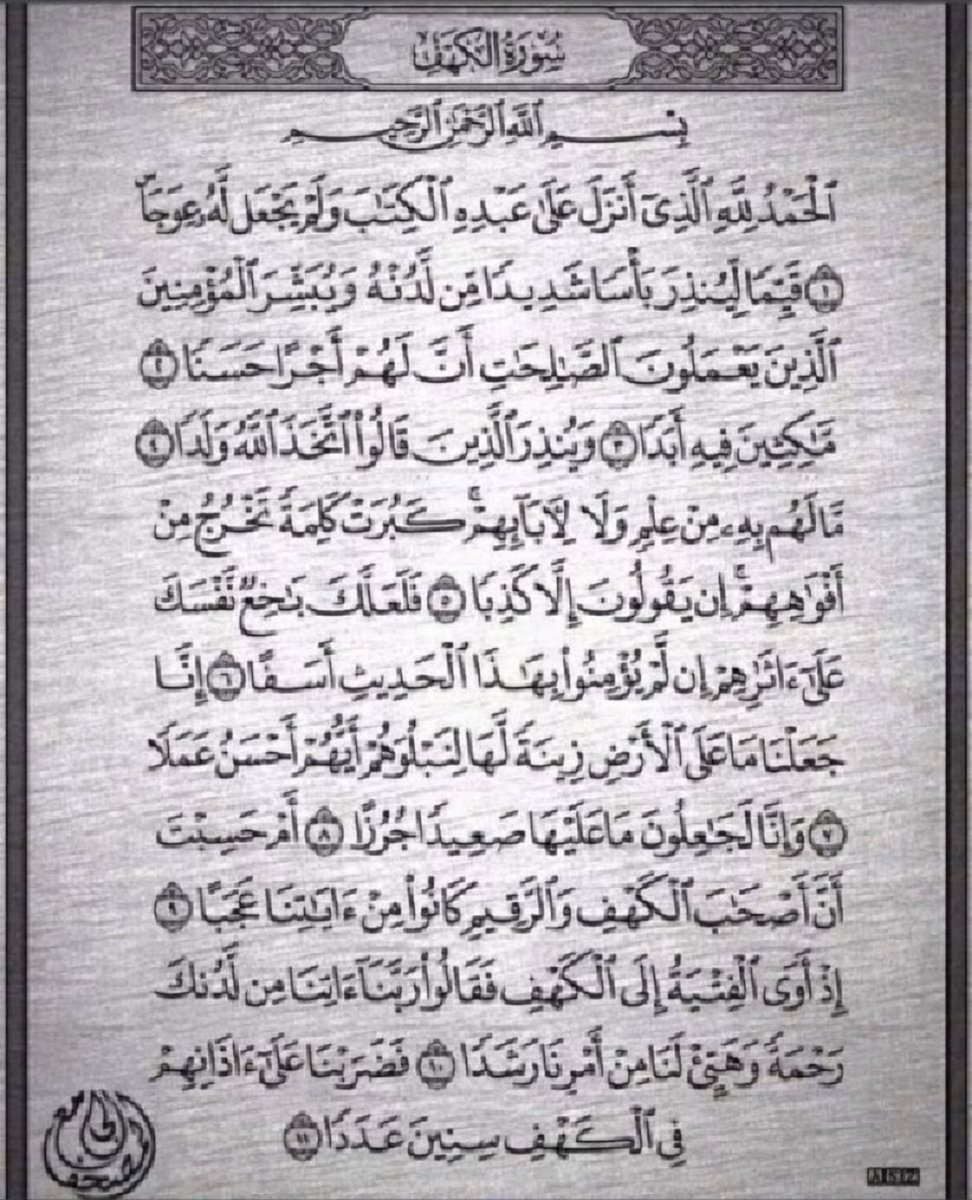 سُورَةُ الكَهْفِ
بِسْمِ ٱللَّهِ ٱلرَّحْمَٰنِ ٱلرَّحِيمِ
ٱلْحَمْدُ لِلَّهِ ٱلَّذِىٓ أَنزَلَ عَلَىٰ عَبْدِهِ ٱلْكِتَٰبَ وَلَمْ يَجْعَل لَّهُۥ عِوَجَاۜ
١ قَيِّمًا لِّيُنذِرَ بَأْسًا شَدِيدًا مِّن لَّدُنْهُ وَيُبَشِّرَ ٱلْمُؤْمِنِينَ
ٱلَّذِينَ يَعْمَلُونَ ٱلصَّٰلِحَٰتِ أَنَّ لَهُمْ أَجْرًا حَسَنًا ٢
مَّٰكِثِينَ فِيهِ أَبَدًا ٣ وَيُنذِرَ ٱلَّذِينَ قَالُوا۟ ٱتَّخَذَ ٱللَّهُ وَلَدًا ٤
مَّا لَهُم بِهِۦ مِنْ عِلْمٍ وَلَا لِأٓبَآئِهِمْ ۚ كَبُرَتْ كَلِمَةً تَخْرُجُ مِنْ
أَفْوَٰهِهِمْ ۚ إِن يَقُولُونَ إِلَّا كَذِبًا ٥ فَلَعَلَّكَ بَٰخِعٌ نَّفْسَكَ
عَلَىٰٓ ءَاثَٰرِهِمْ إِن لَّمْ يُؤْمِنُوا۟ بِهَٰذَا ٱلْحَدِيثِ أَسَفًا ٦ إِنَّا
جَعَلْنَا مَا عَلَى ٱلْأَرْضِ زِينَةً لَّهَا لِنَبْلُوَهُمْ أَيُّهُمْ أَحْسَنُ عَمَلًا
٧ وَإِنَّا لَجَٰعِلُونَ مَا عَلَيْهَا صَعِيدًا جُرُزًا ٨ أَمْ حَسِبْتَ
أَنَّ أَصْحَٰبَ ٱلْكَهْفِ وَٱلرَّقِيمِ كَانُوا۟ مِنْ ءَايَٰتِنَا عَجَبًا ٩
إِذْ أَوَى ٱلْفِتْيَةُ إِلَى ٱلْكَهْفِ فَقَالُوا۟ رَبَّنَآ ءَاتِنَا مِن لَّدُنكَ
رَحْمَةً وَهَيِّئْ لَنَا مِنْ أَمْرِنَا رَشَدًا ١٠ فَضَرَبْنَا عَلَىٰٓ ءَاذَانِهِمْ
فِى ٱلْكَهْفِ سِنِينَ عَدَدًا ١١